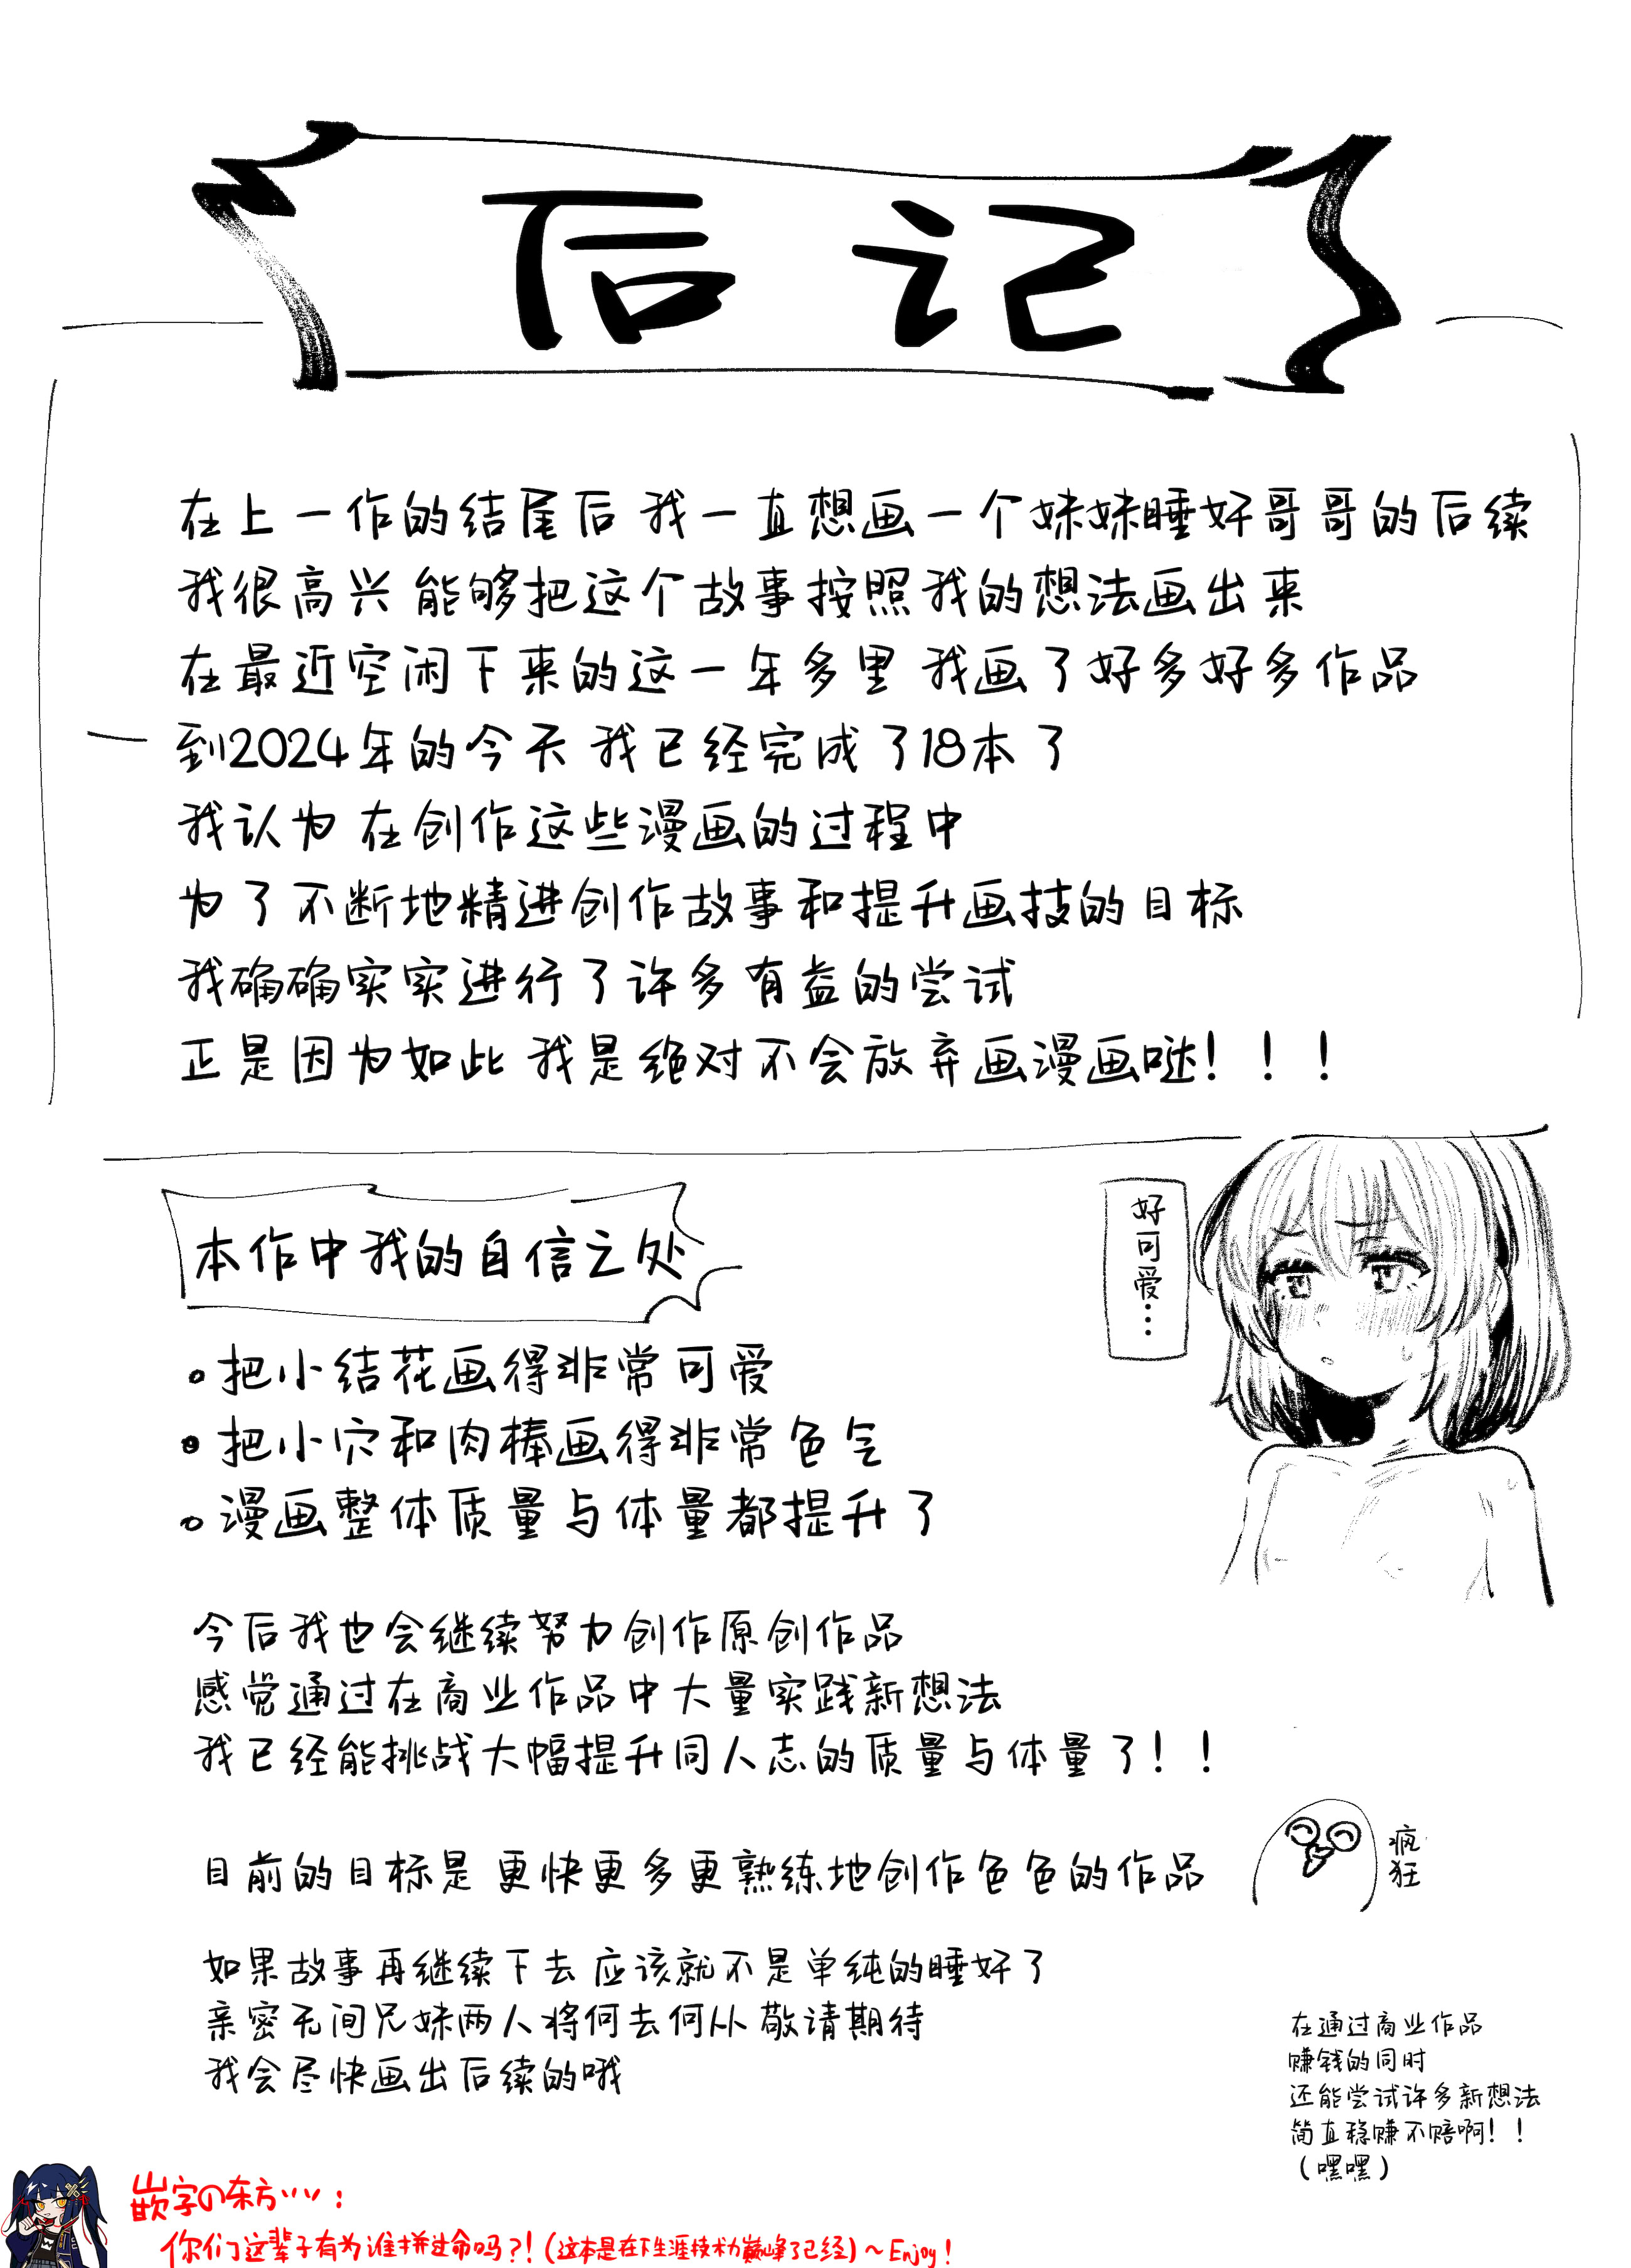 后记
在上一作的结尾后 我一直想画一个妹妹睡奸哥哥的后续
我很高兴 能够把这个故事按照我的想法画出来
在最近空闲下来的这一年多里 我画了好多好多作品
到2024年的今天 我已经完成了18本了
我认为 在创作这些漫画的过程中
为了不断地精进创作故事和提升画技的目标
我确确实实进行了许多有益的尝试
正是因为如此 我是绝对不会放弃画漫画哒！！！
本作中我的自信之处
好可爱…
把小结花画得非常可爱
把小穴和肉棒画得非常色气
漫画整体质量与体量都提升了
今后我也会继续努力创作原创作品
感觉通过在商业作品中大量实践新想法
我已经能挑战大幅提升同人志的质量与体量了！！
目前的目标是 更快更多更熟练地创作色色的作品
疯狂
如果故事再继续下去 应该就不是单纯的睡奸了
亲密无间兄妹两人将何去何从 敬请期待
我会尽快画出后续的哦
在通过商业作品
赚钱的同时
还能尝试许多新想法
简直稳赚不赔啊！！
（嘿嘿）
嵌字の东方丷丷：
你们这辈子有为谁拼过命吗？！（这本是在下生涯技术力巅峰了已经）～Enjoy！